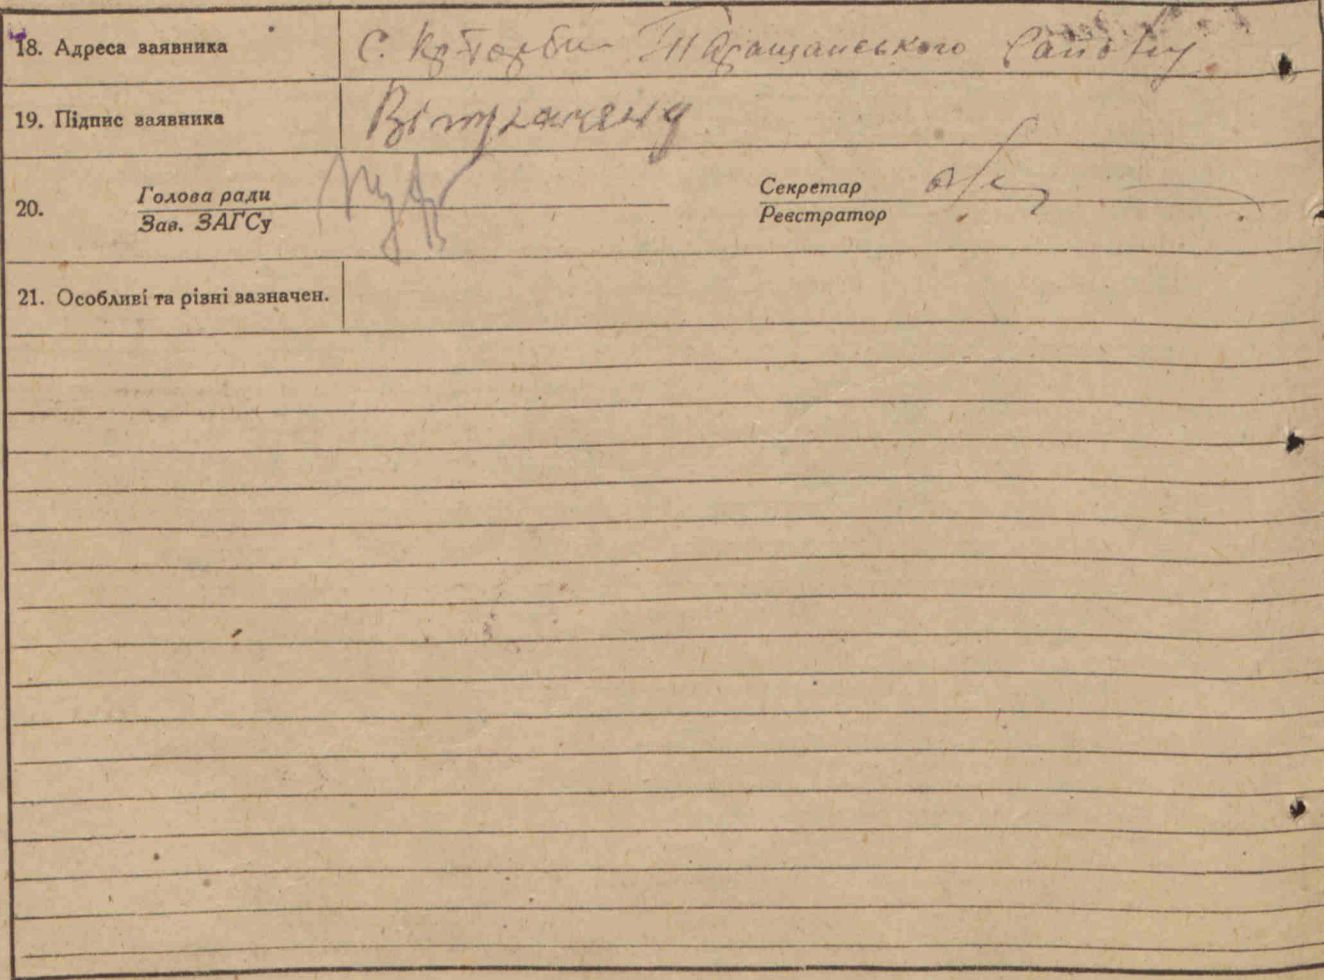 18. Адреса заявника С. Кр. Торби Таращанського району
19. Підпис заявника
20. Голова ради Секретар
Зав. ЗАГСу Реєстратор
21. Особливі та різні зазначен.